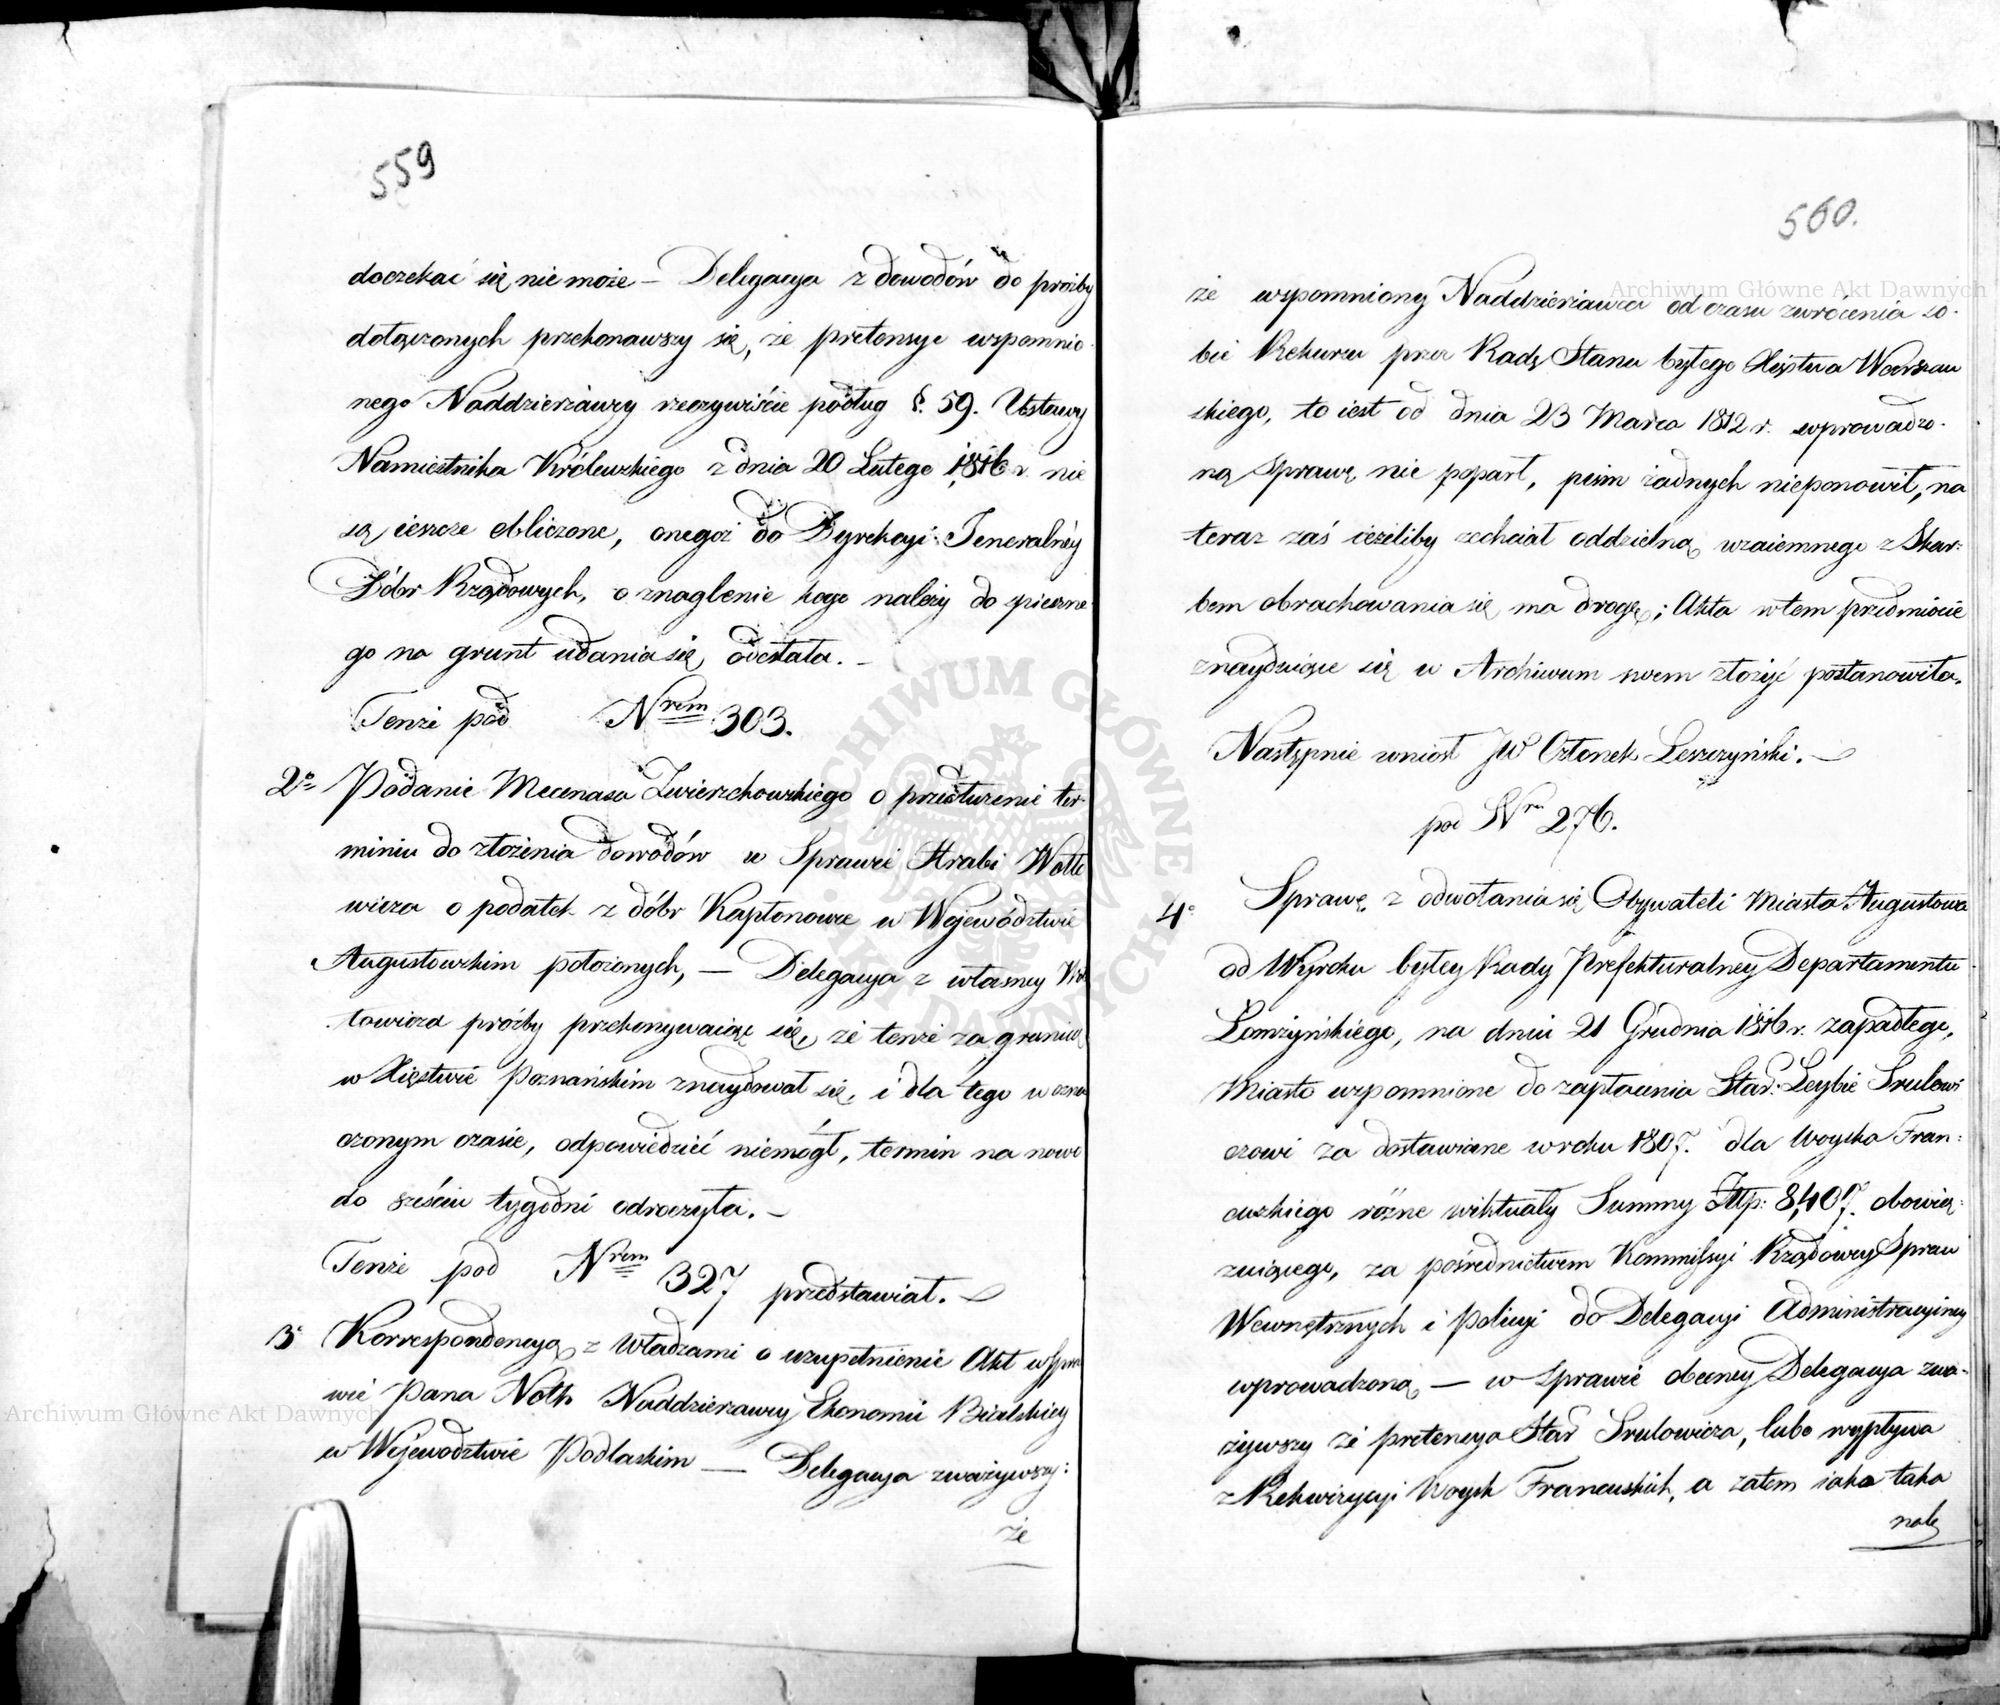 559
doczekać się nie może — Delegacya z dowodów do prośby
dołączonych przekonawszy się, że pretensye wspomnio-
nego Naddzierżawcy rzeczywiście podług §. 59. Ustawy
Namiestnika Królewskiego z dnia 20 Lutego 1816 r. nie
są ieszcze obliczone, onegoż do Dyrekcyi Jeneralnéy
Dóbr Rządowych, o znaglenie kogo należy do spieszne-
go na grunt udania się, odesłała. —
Tenże pod Nrem 303.
2o Podanie Mecenasa Zwierzchowskiego o przedłużenie ter-
minu do złożenia dowodów w Sprawie Hrabi Wołło
wicza o podatek z dóbr Kaptonowze w Województwie
Augustowskim położonych, — Delegacya z własney Woł
łowicza prośby przekonywaiąc się, że tenże za granicą
w Xięstwie Poznańskim znaydował się, i dla tego w ozna
czonym czasie, odpowiedzieć niemógł, termin na nowo
do sześciu tygodni odroczyła. —
Tenże pod Nrem 327 przedstawiał. —
3o Korrespondencyą z Władzami o uzupełnienie Akt w Spra
wie Pana Noth Naddzierzawcy Ekonomii Bialskiey
w Województwie Podlaskim — Delegacya zważywszy:
że
560.
że wspomniony Naddzierżawca od czasu zwrócenia so-
bie Rekursu przez Radę Stanu byłego Xięstwa Warszaw
skiego, to iest od dnia 23 Marca 1812 r. wprowadzo-
ną Sprawę nie poparł, pism żadnych nieponowił, na
teraz zaś ieżeliby zechciał oddzielną wzaiemnego z Skar-
bem obrachowania się ma drogę; Akta w tem przedmiocie
znayduiące się w Archiwum swem złożyć postanowiła.
Następnie wniosł JW Członek Leszczyński. —
pod Nrm 276.
4o Sprawę z odwołania się Obywateli Miasta Augustowa
od Wyroku byłey Rady Prefekturalney Departamentu
Łomżyńskiego, na dniu 21 Grudnia 1816 r. zapadłego,
Miasto wspomnione do zapłacenia Star. Leybie Srulowi
czowi za dostawiane w roku 1807. dla Woyska Fran-
cuskiego różne wiktuały Summy Złtp: 8,407. obowią-
zuiącego, za pośrednictwem Kommissyi Rządowey Spraw
Wewnętrznych i Policyi do Delegacyi Administracyiney
wprowadzoną — w Sprawie obecney Delegacya zwa-
żywszy że pretensya Star Srulowicza, lubo wypływa
z Rekwizycyi Woysk Francuskich, a zatem iako taka
nale
Archiwum Główne Akt Dawnych
Archiwum Główne Akt Dawnych
ARCHIWUM GŁÓWNE
AKT DAWNYCH